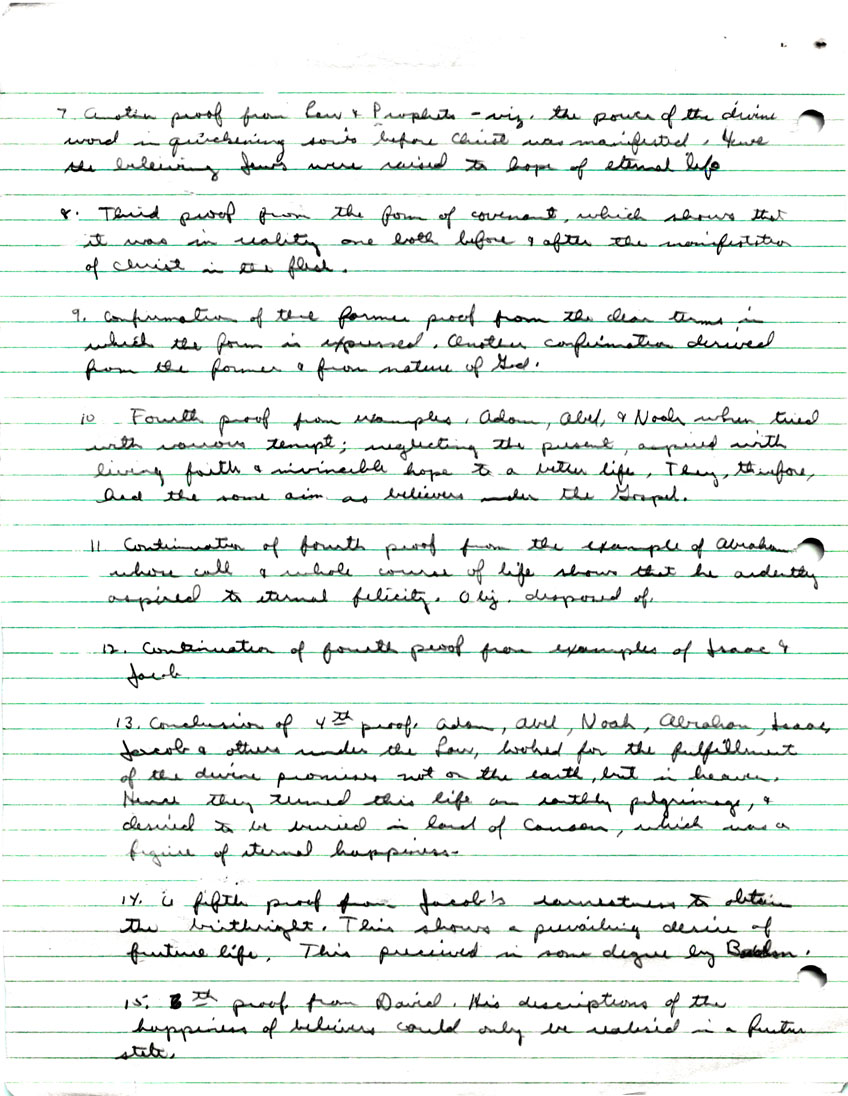 7 Another proof from Law & Prophets - viz. the power of the divine
word in quickening souls before Christ was manifested. Hence
the believing Jews were raised to hope of eternal life
8. Third proof from the form of covenant, which shows that
it was in reality one both before & after the manifestation
of Christ in the flesh.
9. Confirmation of the former proof from the clear terms in
which the form is expressed. Another confirmation derived
from the former & from nature of God.
10 Fourth proof from examples. Adam, Abel, & Noah when tried
with various tempt; neglecting the present, aspired with
living faith & invincible hope to a better life. They, therefore,
had the same aim as believers under the Gospel.
11 Continuation of fourth proof from the example of Abraham
whose call & whole course of life shows that he ardently
aspired to eternal felicity. Obj. disposed of.
12. Continuation of fourth proof from examples of Isaac &
Jacob
13. Conclusion of 4th proof. Adam, Abel, Noah, Abraham, Isaac,
Jacob & others under the Law, looked for the fulfillment
of the divine promises not on the earth, but in heaven.
Hence they termed this life an earthly pilgrimage, &
desired to be buried in land of Canaan, which was a
figure of eternal happiness-
14. A fifth proof from Jacob's earnestness to obtain
the birthright. This shows a prevailing desire of
future life. This perceived in some degree by Balaam.
15. 6th proof from David. His descriptions of the
happiness of believers could only be realised in a future
state.